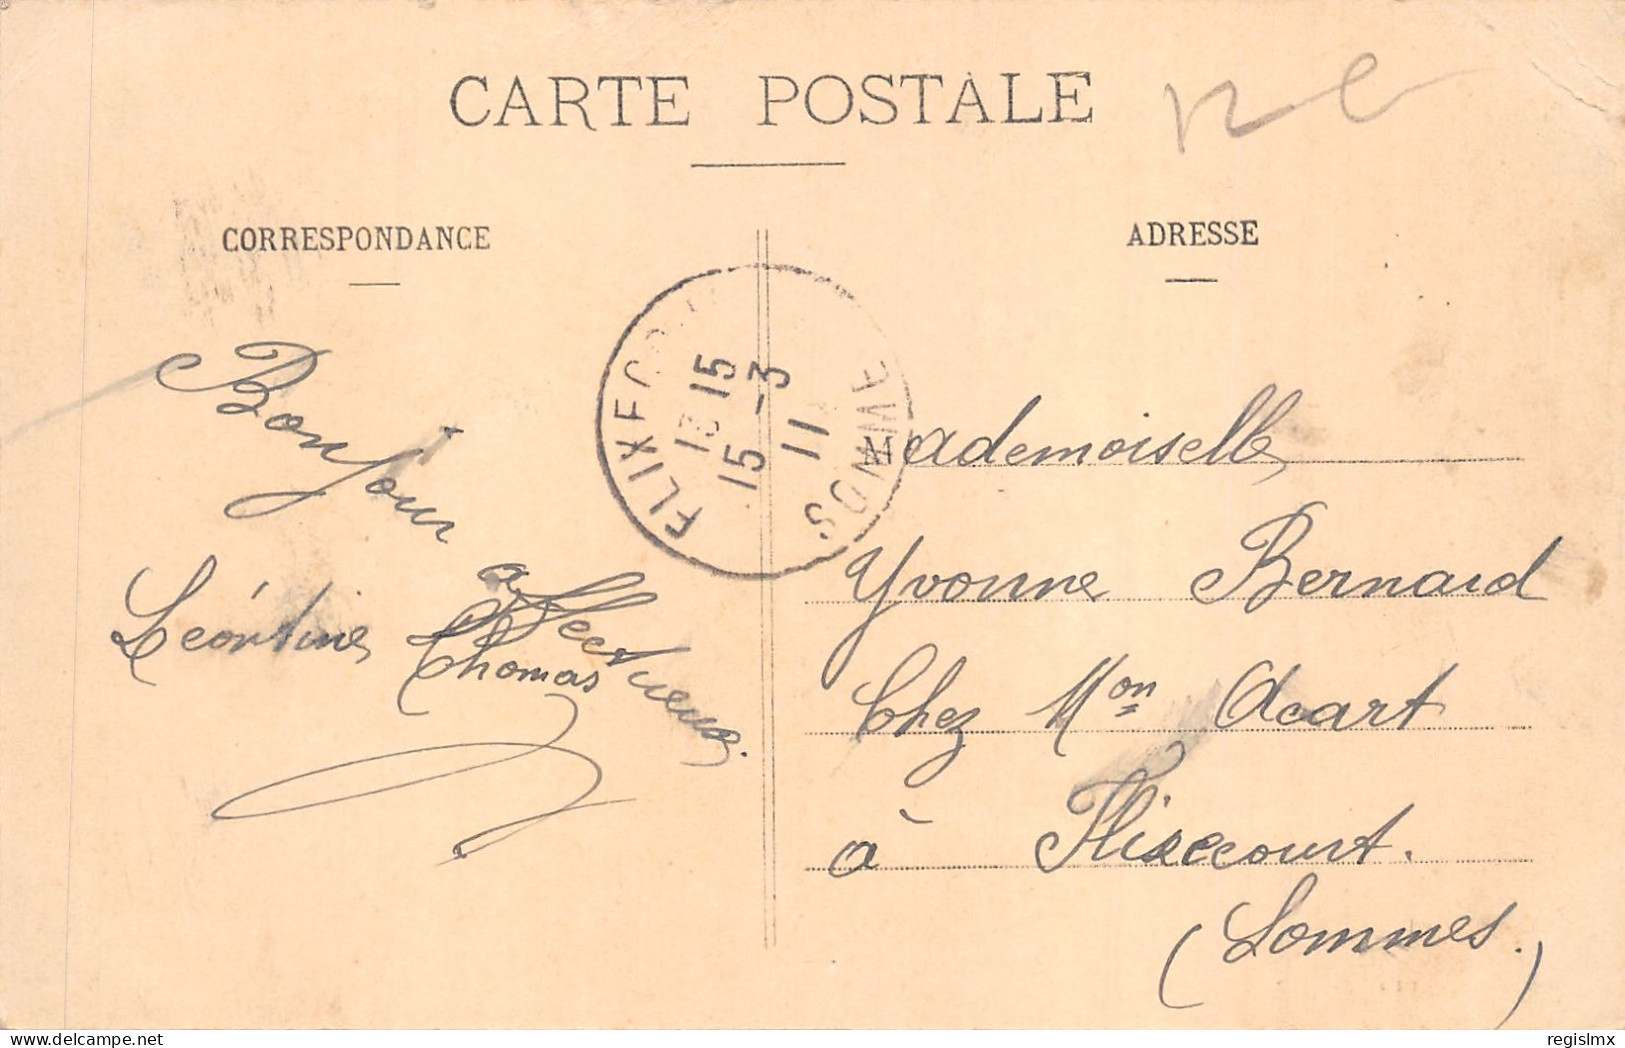 CARTE POSTALE
CORRESPONDANCE
ADRESSE
Bonjour
affectueux.
Léontine Thomas
FLIXECOURT
SOMME
13 15
15 - 3
11
Mademoiselle
Yvonne Bernard
Chez Mon Acart
à Flixecourt.
(Sommes.)
regislmx